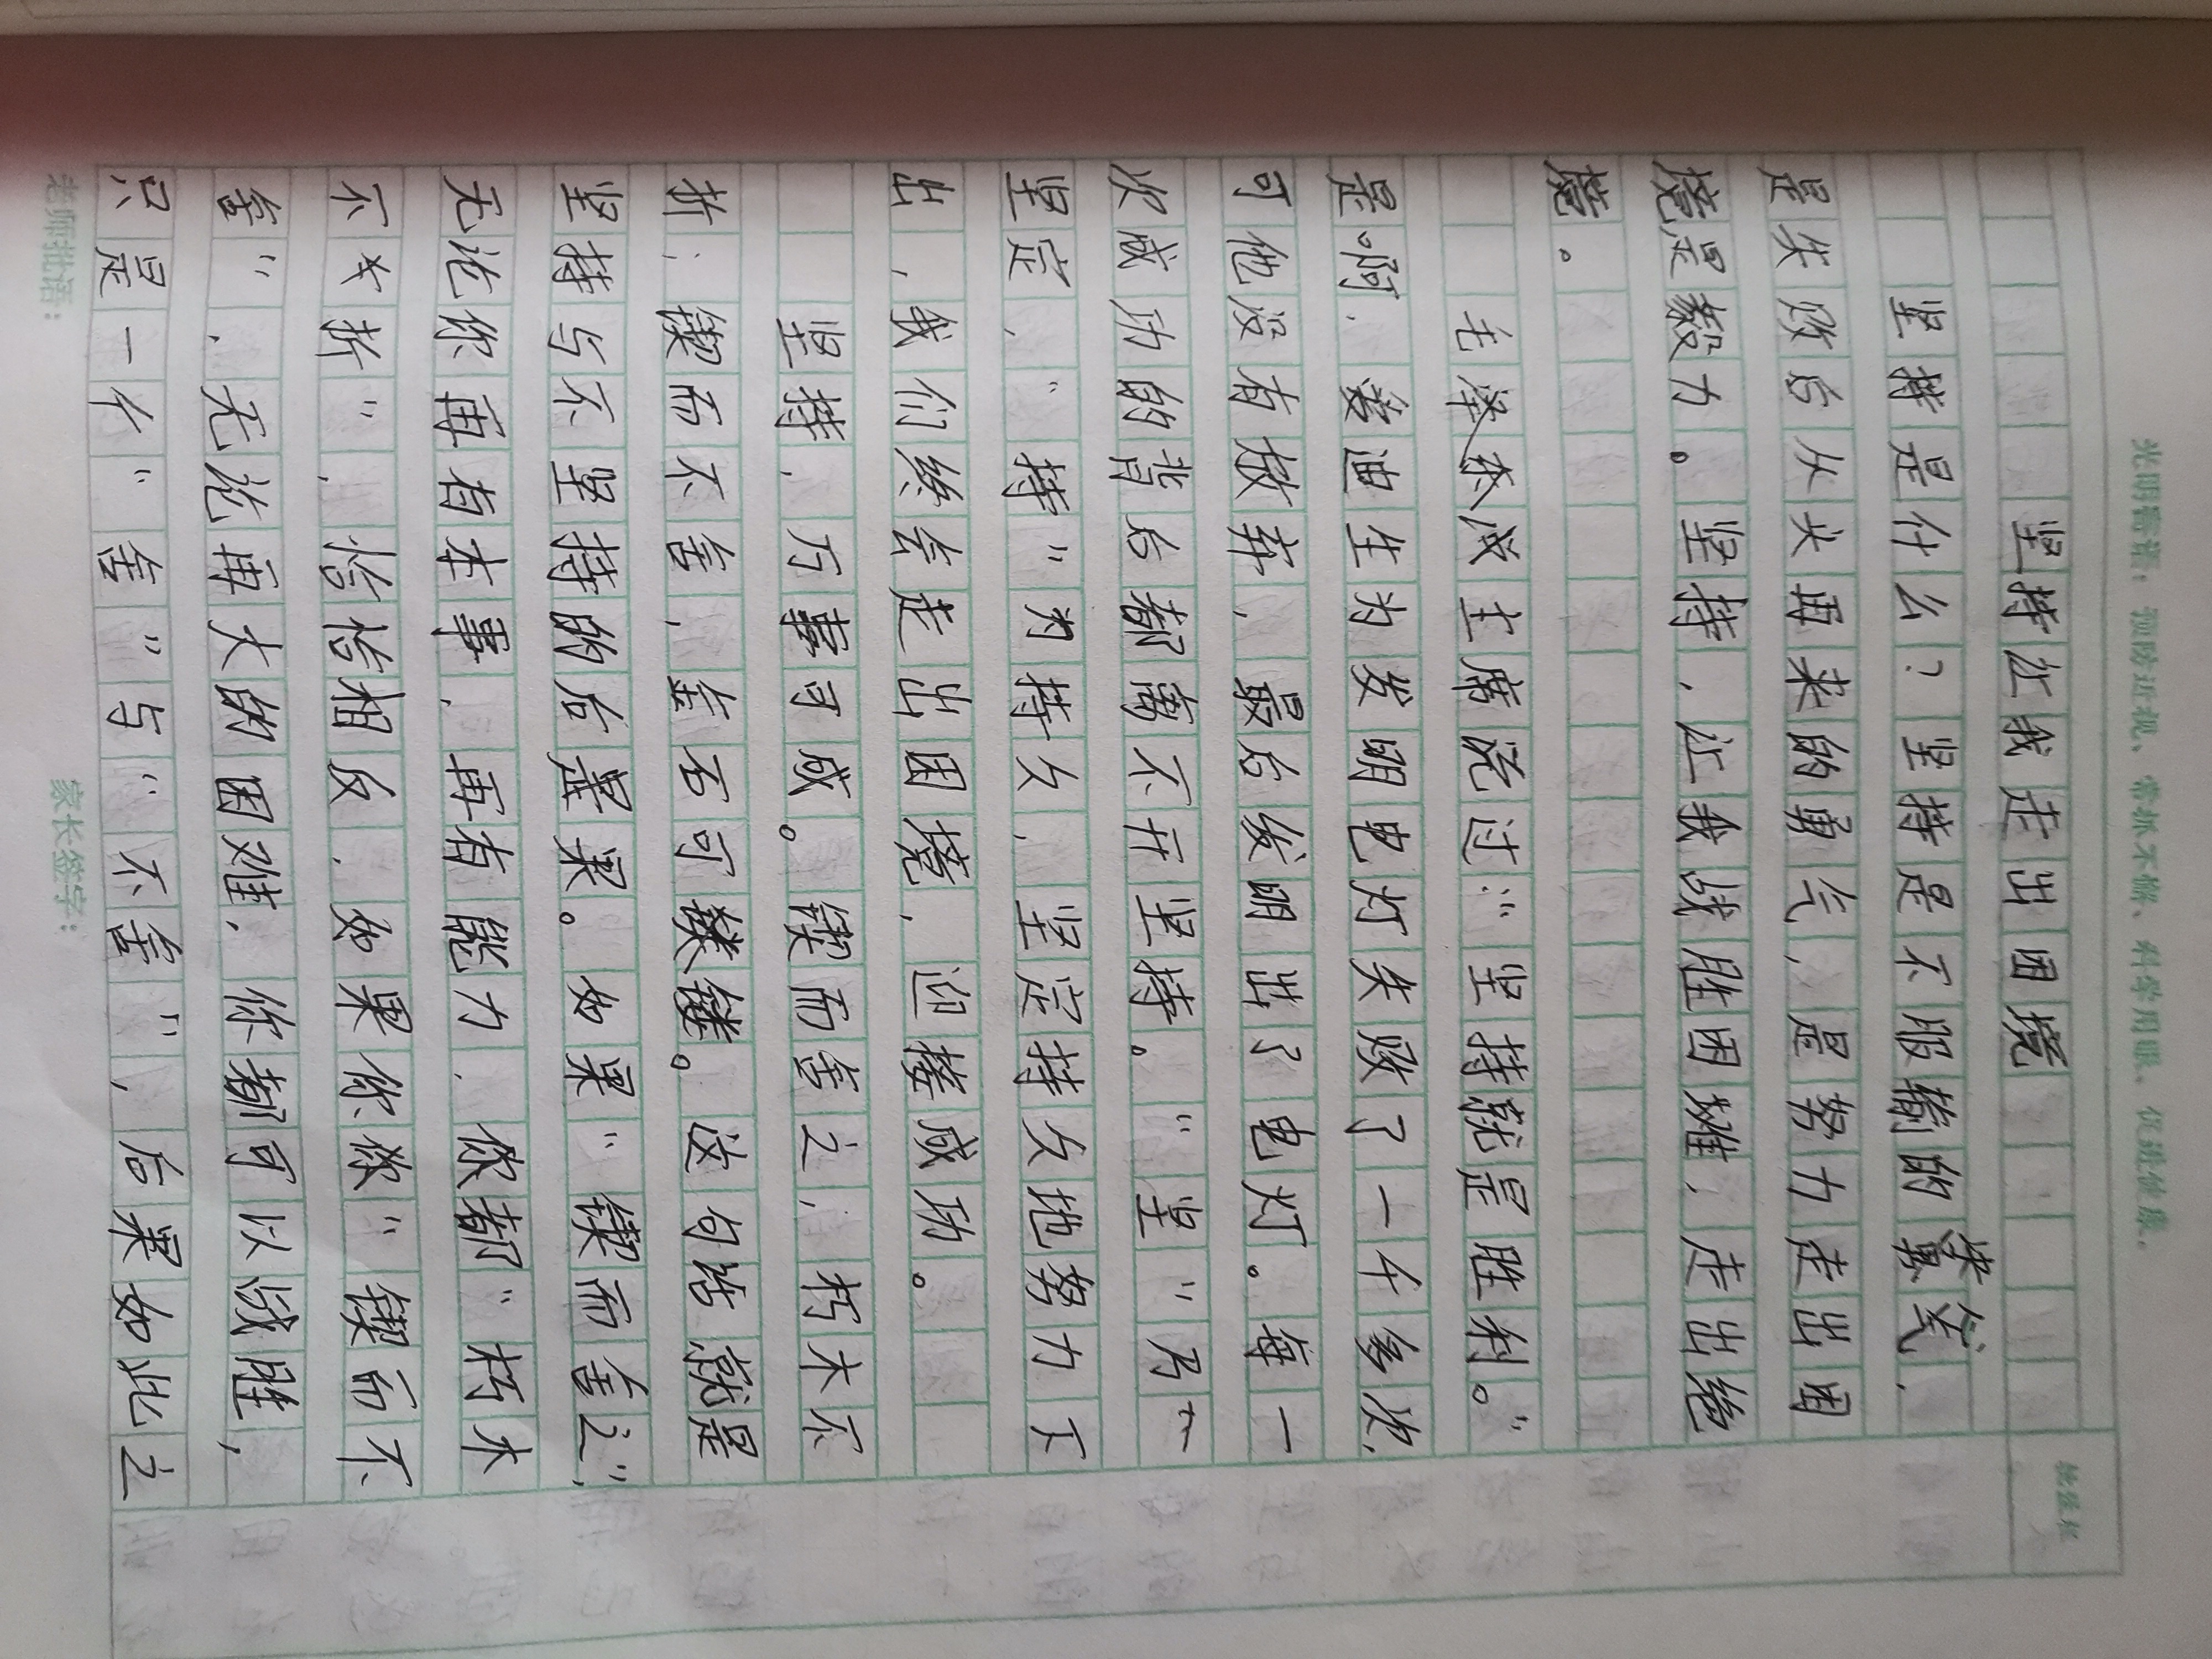 光明寄语：预防近视、常抓不懈、科学用眼、优建健康。
坚持让我走出困境
坚持是什么？坚持是不服输的勇气，
是失败后从头再来的勇气，是努力走出困
境，是毅力。坚持，让我战胜困难，走出绝
境。
毛泽东主席说过：“坚持就是胜利。”
是啊，爱迪生为发明电灯失败了一千多次，
可他没有放弃，最后发明出了电灯。每一
次成功的背后都离不开坚持。“坚”乃
坚定，“持”为持久，坚定持久地努力下
出，我们终会走出困境，迎接成功。
坚持，万事可成。锲而舍之，朽木不
折；锲而不舍，金石可镂。这句话就是
坚持与不坚持的后果。如果“锲而舍之”，
无论你再有本事，再有能力，你都“朽木
不折”，恰恰相反，如果你你“锲而不
舍”，无论再大的困难，你都可以战胜，
只是一个“舍”与“不舍”，后果如此之
老师批语：
家长签字：